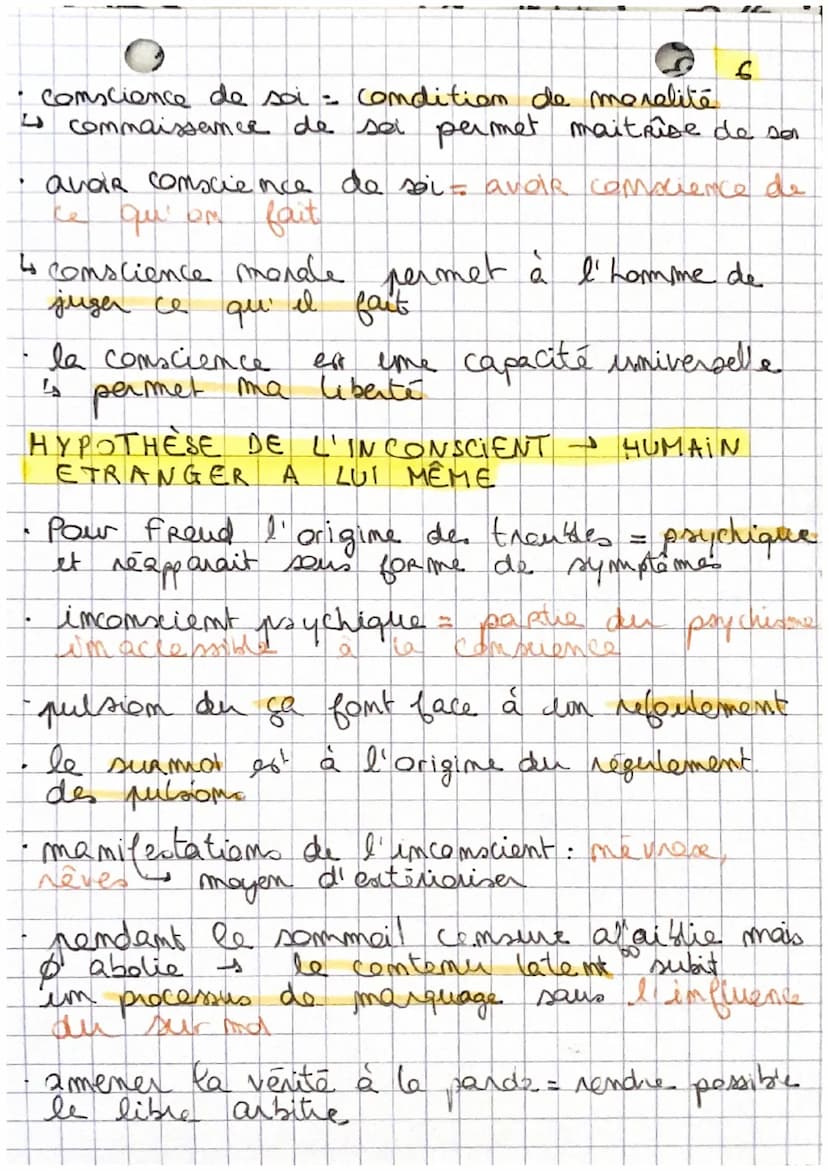 6
· conscience de soi = condition de moralité
↳ connaissance de soi permet maitrîse de soi
· avoir conscience de soi = avoir conscience de
ce qu'on fait
↳ conscience morale permet à l'homme de
juger ce qu'il fait
· la conscience est une capacité universelle
↳ permet ma liberté
HYPOTHÈSE DE L'INCONSCIENT → HUMAIN
ETRANGER A LUI MÊME
· Pour Freud l'origine des troubles = psychique
et réapparait sous forme de symptômes
· inconscient psychique = partie du psychisme
inaccessible à la conscience
- pulsion du ça font face à un refoulement
· le surmoi est à l'origine du régulement
des pulsions
· manifestations de l'inconscient : névrose,
rêves ↳ moyen d'extérioriser
· pendant le sommeil censure affaiblie mais
Ø abolie → le contenu latent subit
un processus de masquage sous l'influence
du sur moi
· amener la vérité à la parole = rendre possible
le libre arbitre